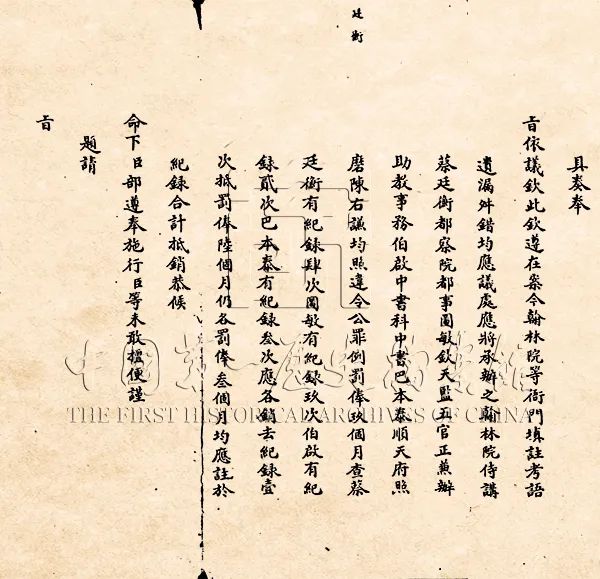 廷衡
具奏奉
旨依議欽此欽遵在案今翰林院等衙門填註考語
遺漏舛錯均應議處應將承辦之翰林院侍講
蔡廷衡都察院都事圖敏欽天監五官正兼辦
助教事務伯啟中書科中書巴本泰順天府照
磨陳右謙均照違令公罪例罰俸玖個月查蔡
廷衡有紀録肆次圖敏有紀録玖次伯啟有紀
録貳次巴本泰有紀録叁次應各銷去紀録壹
次抵罰俸陸個月仍各罰俸叁個月均應註於
紀録合計抵銷恭候
命下臣部遵奉施行臣等未敢擅便謹
題請
旨
中國第一歷史檔案館
THE FIRST HISTORICAL ARCHIVES OF CHINA